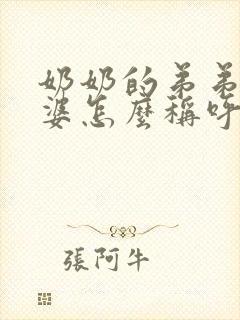 奶奶的弟弟
婆怎麼稱呼
張阿牛